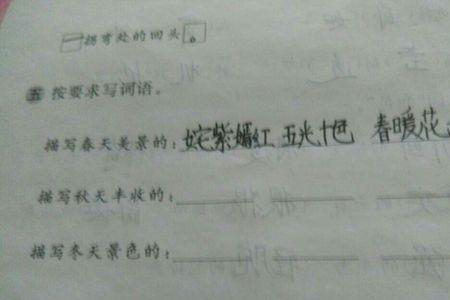 一拐弯处的回头。
五 按要求写词语。
描写春天美景的：姹紫嫣红 五光十色 春暖花
描写秋天丰收的：
描写冬天景色的：